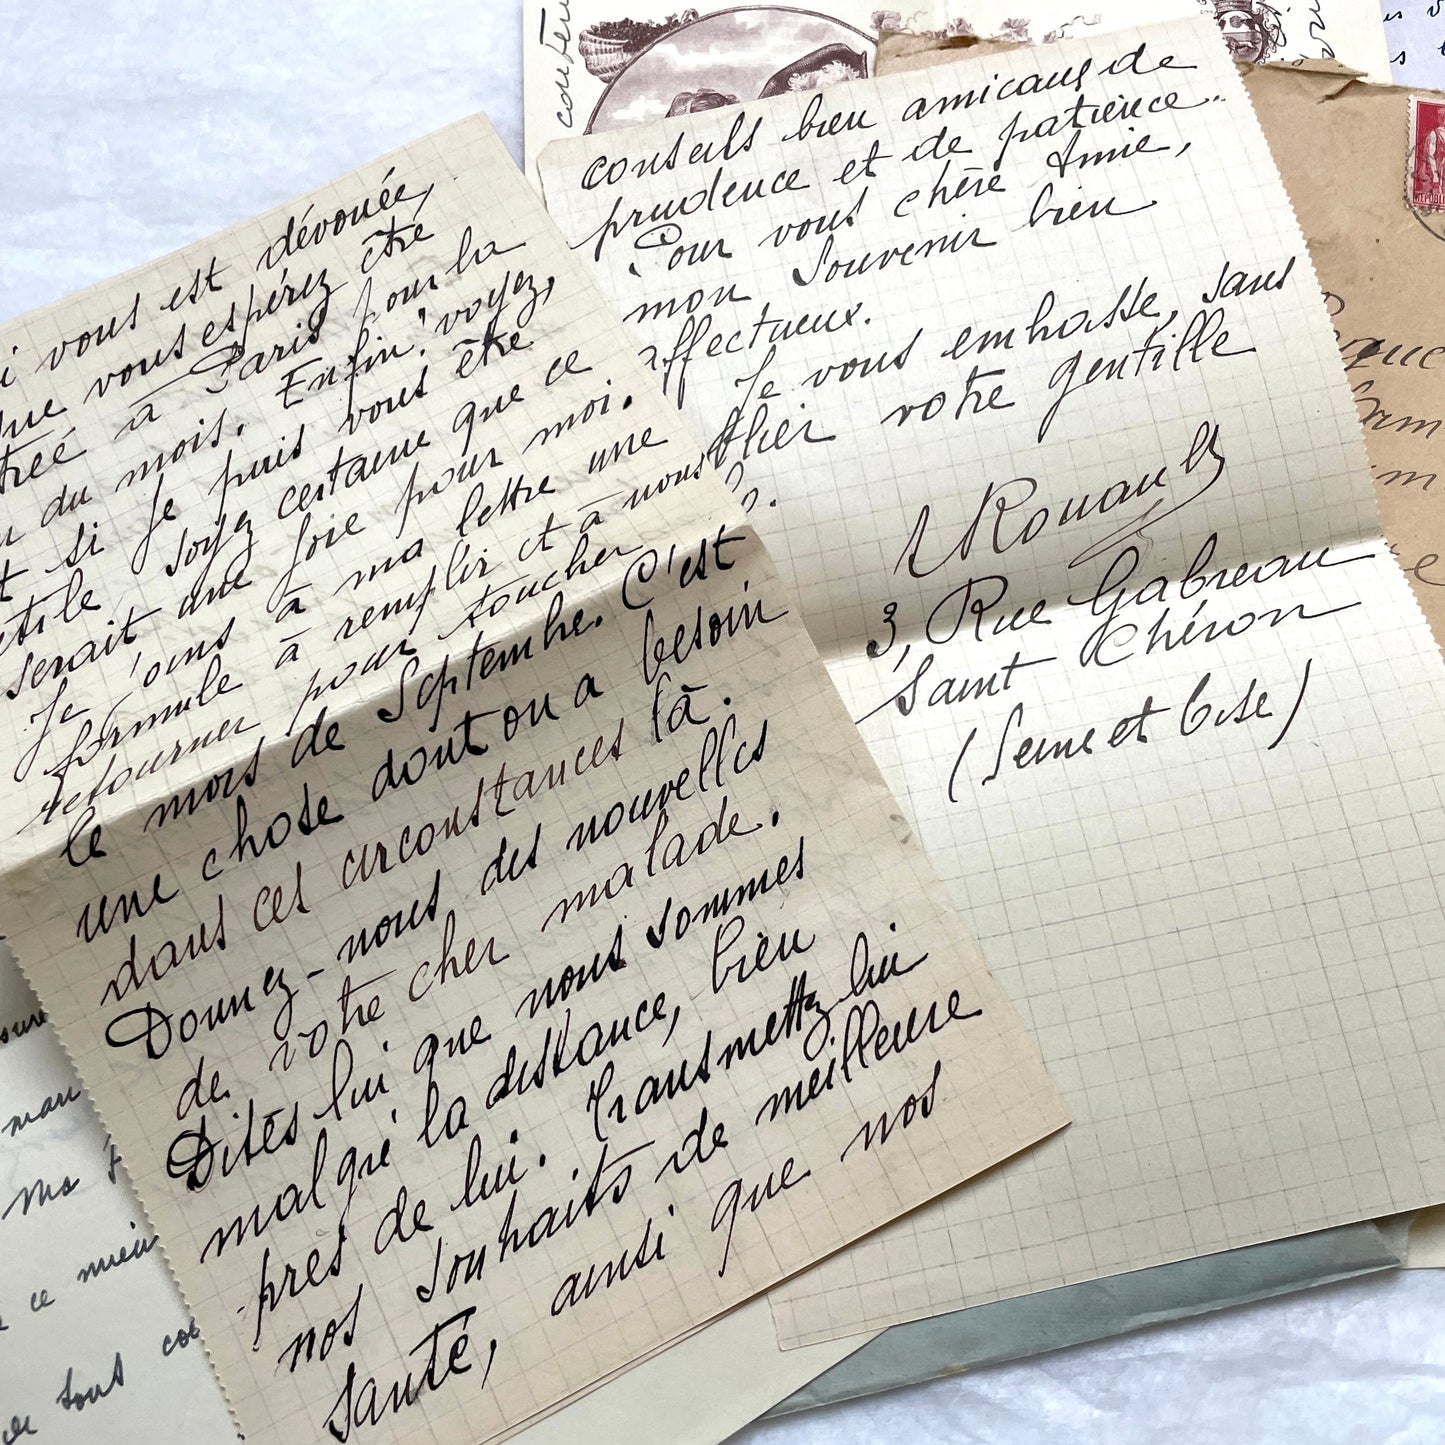 i vous est dévouée,
que vous espérez être
trée à Paris pour la
du mois. Enfin, voyez,
si je puis vous être
utile, soyez certaine que ce
serait une joie pour moi.
Je joins à ma lettre une
formule à remplir et à nous
retourner pour toucher
le mois de Septembre. C'est
une chose dont on a besoin
dans ces circonstances là.
Donnez-nous des nouvelles
de votre cher malade.
Dites lui que nous sommes
malgré la distance, bien
près de lui. Transmettez lui
nos souhaits de meilleure
santé, ainsi que nos
conseils bien amicaux de
prudence et de patience.
Pour vous chère Amie,
mon souvenir bien
affectueux.
Je vous embrasse, sans
oublier votre gentille
Rouault
3, Rue Gabreau
Saint Chéron
(Seine et Oise)
man
ce mieu
tout